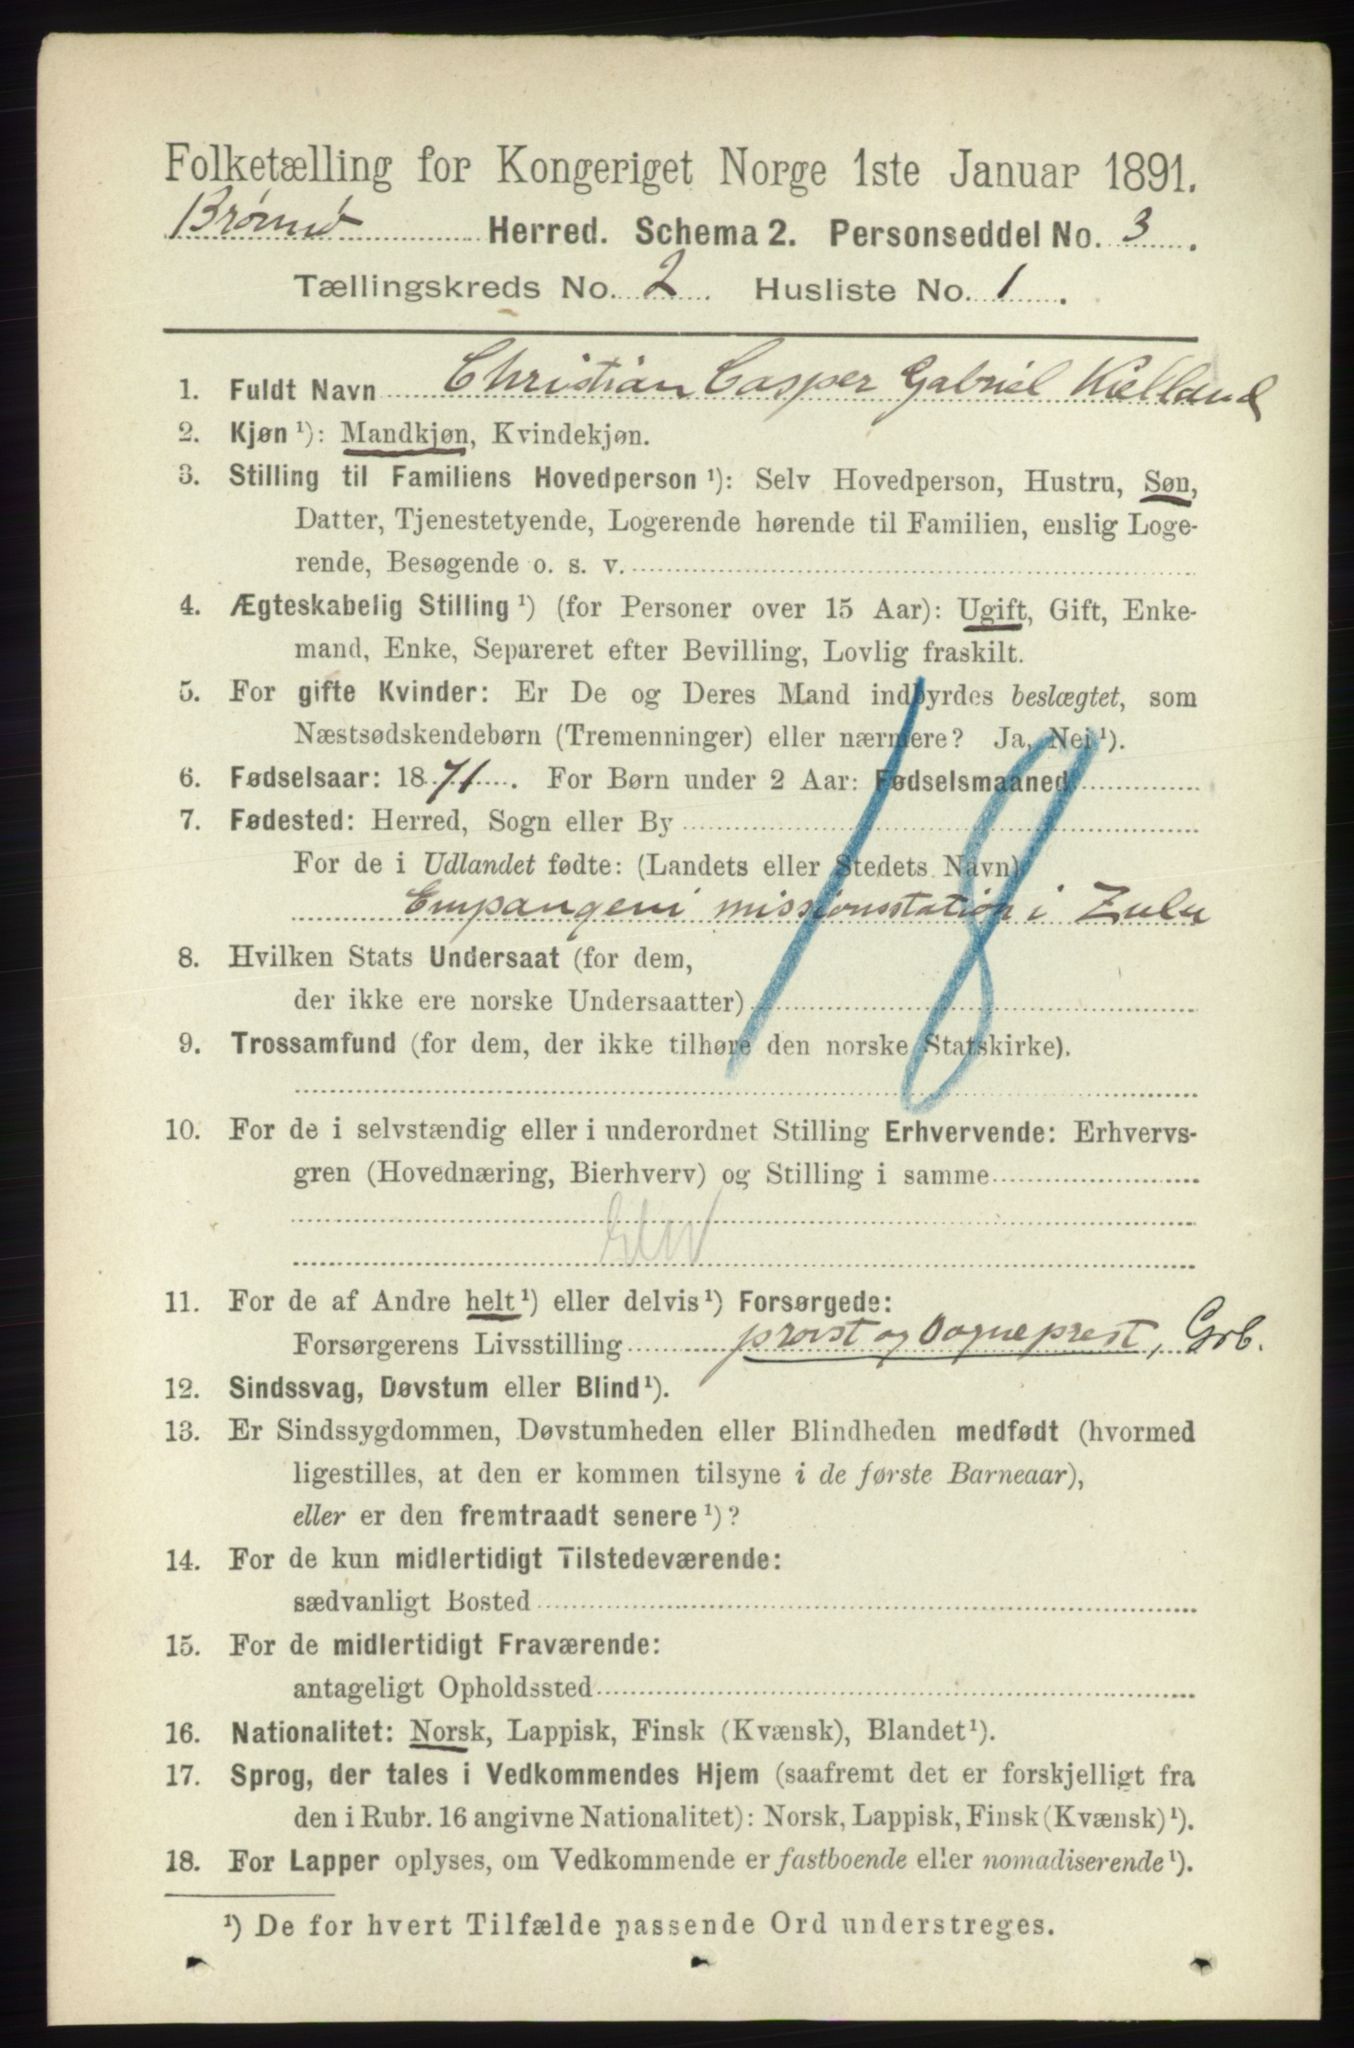 Folketælling for Kongeriget Norge 1ste Januar 1891.
Brønnø Herred. Schema 2. Personseddel No. 3.
Tællingskreds No. 2. Husliste No. 1.
1. Fuldt Navn Christian Casper Gabriel Kielland
2. Kjøn ¹): Mandkjøn, Kvindekjøn.
3. Stilling til Familiens Hovedperson ¹): Selv Hovedperson, Hustru, Søn,
Datter, Tjenestetyende, Logerende hørende til Familien, enslig Loge-
rende, Besøgende o. s. v.
4. Ægteskabelig Stilling ¹) (for Personer over 15 Aar): Ugift, Gift, Enke-
mand, Enke, Separeret efter Bevilling, Lovlig fraskilt.
5. For gifte Kvinder: Er De og Deres Mand indbyrdes beslægtet, som
Næstsødskendebørn (Tremenninger) eller nærmere? Ja, Nei ¹).
6. Fødselsaar: 1871. For Børn under 2 Aar: Fødselsmaaned
7. Fødested: Herred, Sogn eller By
For de i Udlandet fødte: (Landets eller Stedets Navn)
Empangeni missionsstation i Zulu
18
8. Hvilken Stats Undersaat (for dem,
der ikke ere norske Undersaatter)
9. Trossamfund (for dem, der ikke tilhøre den norske Statskirke).
10. For de i selvstændig eller i underordnet Stilling Erhvervende: Erhvervs-
gren (Hovednæring, Bierhverv) og Stilling i samme
Elev
11. For de af Andre helt ¹) eller delvis ¹) Forsørgede:
Forsørgerens Livsstilling provst og Sogneprest, Grb.
12. Sindssvag, Døvstum eller Blind ¹).
13. Er Sindssygdommen, Døvstumheden eller Blindheden medfødt (hvormed
ligestilles, at den er kommen tilsyne i de første Barneaar),
eller er den fremtraadt senere ¹)?
14. For de kun midlertidigt Tilstedeværende:
sædvanligt Bosted
15. For de midlertidigt Fraværende:
antageligt Opholdssted
16. Nationalitet: Norsk, Lappisk, Finsk (Kvænsk), Blandet ¹).
17. Sprog, der tales i Vedkommendes Hjem (saafremt det er forskjelligt fra
den i Rubr. 16 angivne Nationalitet): Norsk, Lappisk, Finsk (Kvænsk) ¹).
18. For Lapper oplyses, om Vedkommende er fastboende eller nomadiserende ¹).
¹) De for hvert Tilfælde passende Ord understreges.